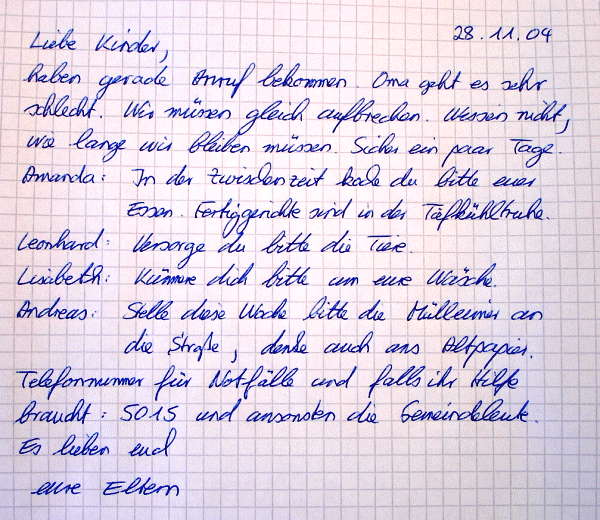 28.11.04
Liebe Kinder,
haben gerade Anruf bekommen. Oma geht es sehr
schlecht. Wir müssen gleich aufbrechen. Wissen nicht,
wie lange wir bleiben müssen. Sicher ein paar Tage.
Amanda: In der Zwischenzeit koche du bitte euer
Essen. Fertiggerichte sind in der Tiefkühltruhe.
Leonhard: Versorge du bitte die Tiere.
Lisabeth: Kümmere dich bitte um eure Wäsche.
Andreas: Stelle diese Woche bitte die Mülleimer an
die Straße, denke auch ans Altpapier.
Telefonnummer für Notfälle und falls ihr Hilfe
braucht: 5015 und ansonsten die Gemeindeleute.
Es lieben euch
eure Eltern